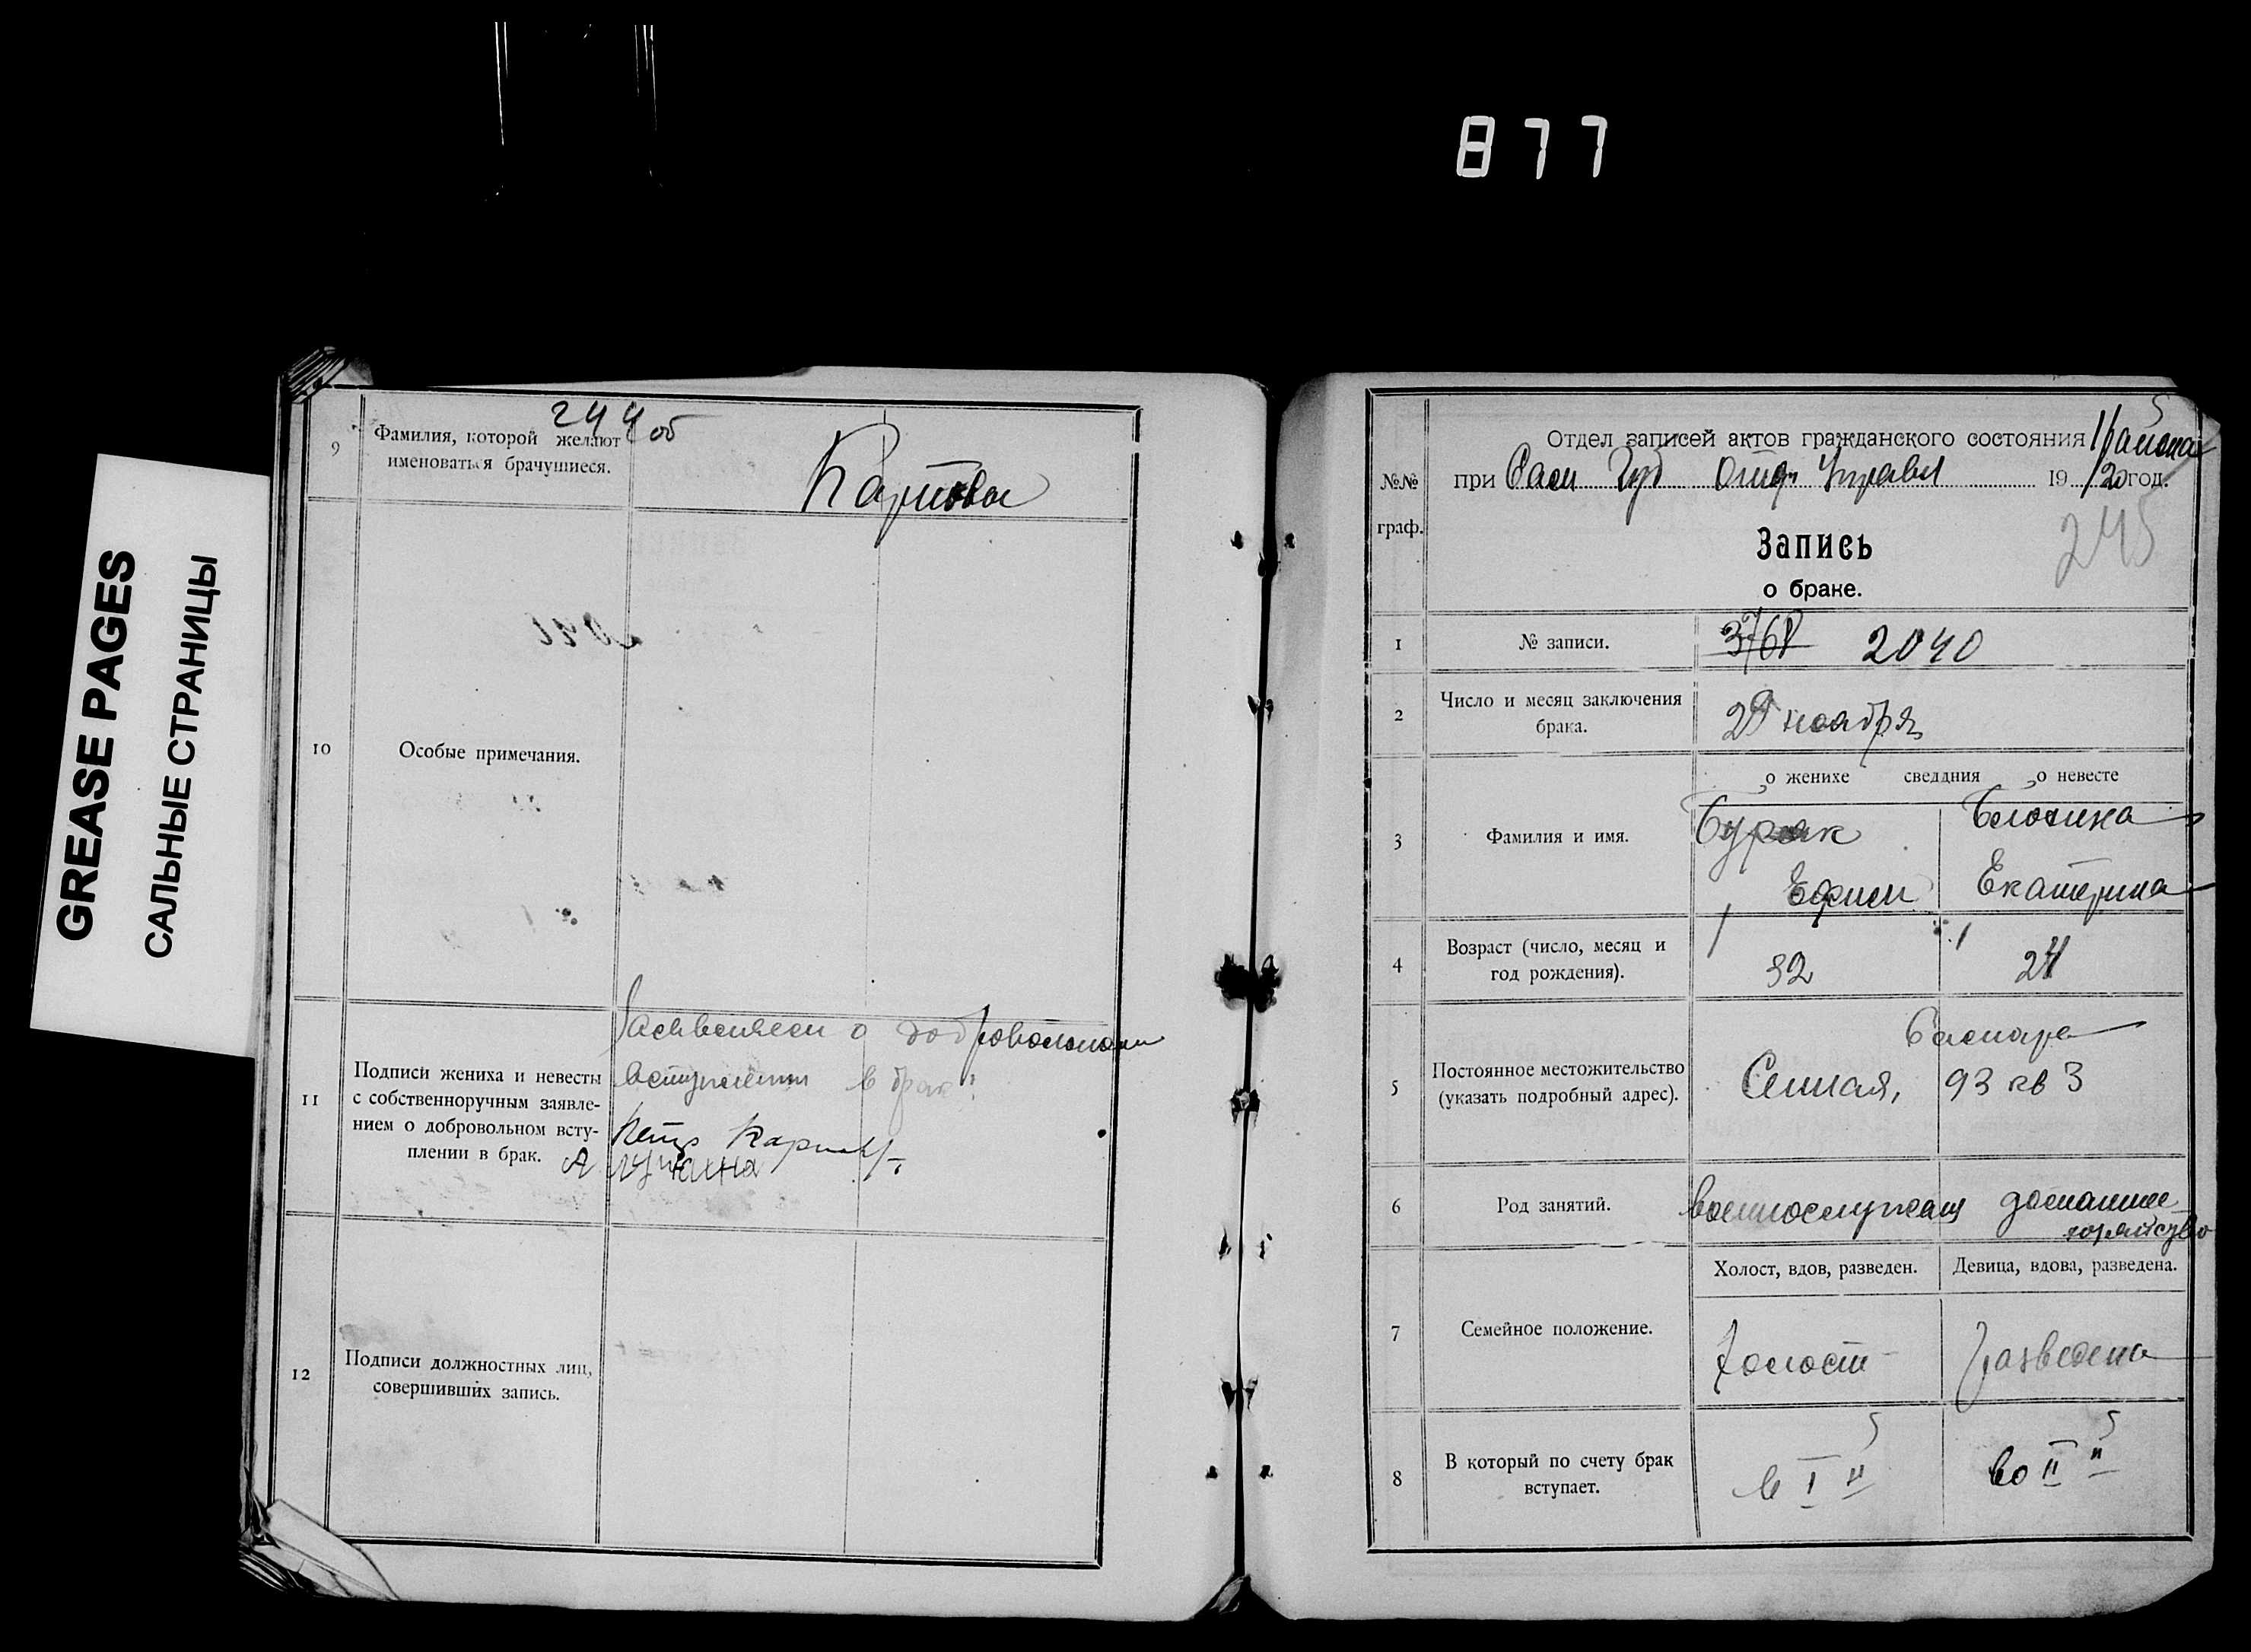 877
GREASE PAGES
САЛЬНЫЕ СТРАНИЦЫ
244 об
9
Фамилия, которой желают
именоваться брачущиеся.
Карповы
10
Особые примечания.
11
Подписи жениха и невесты
с собственноручным заявле-
нием о добровольном всту-
плении в брак.
Заявляем о добровольном
вступлении в брак:
Петр Карпов
12
Подписи должностных лиц,
совершивших запись.
№№
граф.
Отдел записей актов гражданского состояния 1 района
при Сам Губ Отд Управл 19 20 год.
245
Запись
о браке.
1
№ записи.
3768 2040
2
Число и месяц заключения
брака.
29 ноября
о женихе сведдния о невесте
3
Фамилия и имя.
Бурак
Ефим
Екатерина
4
Возраст (число, месяц и
год рождения).
32
24
5
Постоянное местожительство
(указать подробный адрес).
Самара
Сенная, 93 кв 3
6
Род занятий.
военнослужащ
домашнее
хозяйство
7
Семейное положение.
Холост, вдов, разведен.
Девица, вдова, разведена.
холост
разведена
8
В который по счету брак
вступает.
в I й
во II й